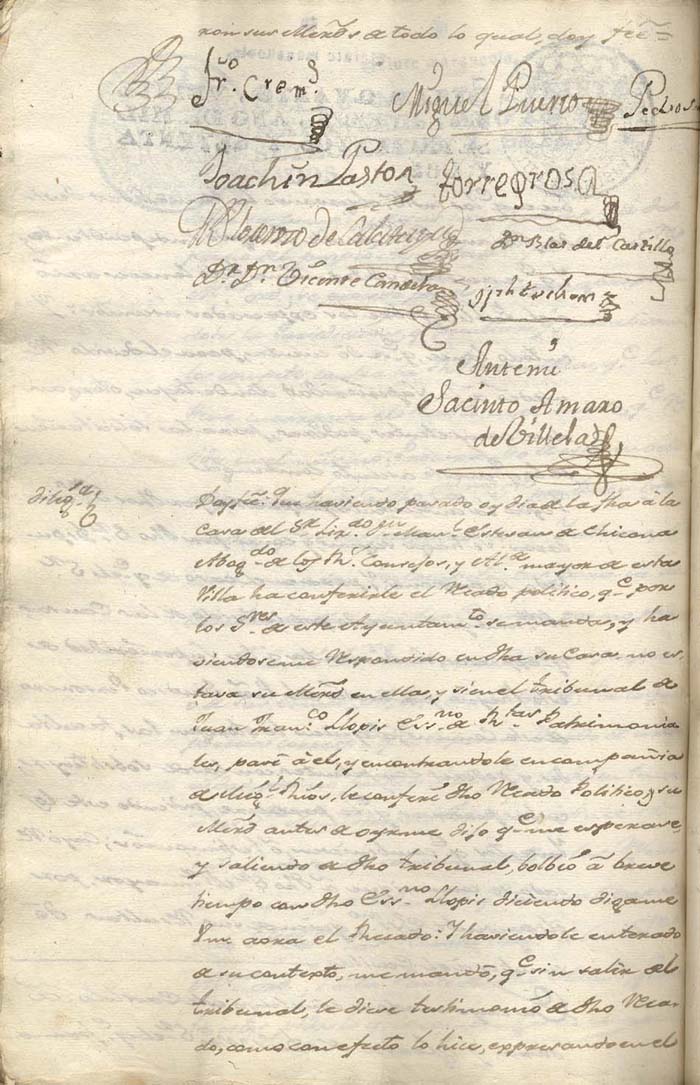 ron sus Merds. de todo lo qual, doy feé=
Frco. Cremds.
Miguel Puerto
Pedro
Joachin Pastor
torregrosa
Lorenzo de Calatayud
Dn. Blas del Castillo
Dr. Dn. Viçente Candela
Antemi
Jacinto Amaro
de Villela
dilига
Doy feé. que haviendo pasado oy dia de la fha à la
Casa del Sr. Lizdo. Dn. Manl. Estevan de Chicona
Abogdo. de los Rs. Consejos, y Alde. mayor de esta
Villa ha conferirle el Recado politico, qe. por
los Sres. de este Ayuntamto. se manda, y ha
viendoseme respondido en dha su Casa no es,
tava su Merd. en ella, y si en el tribunal de
Juan Franco. Llopis Essno. de Rtas. Patrimonia
les, pasé à èl, y encontrandole en compañia
de Rios, le conferí dho Recado Politico, y su
Merd. antes de oyrme dijo qe. me esperase,
y saliendo de dho tribunal, bolbió à breve
tiempo con dho Essno. Llopis diciendo digame
Vm. aora el Recado: Y haviendole enterado
de su contexto, me mandó, qe. sin salir del
tribunal, le diese testimonio de dho Reca
do, como con efecto lo hice, expresando en el